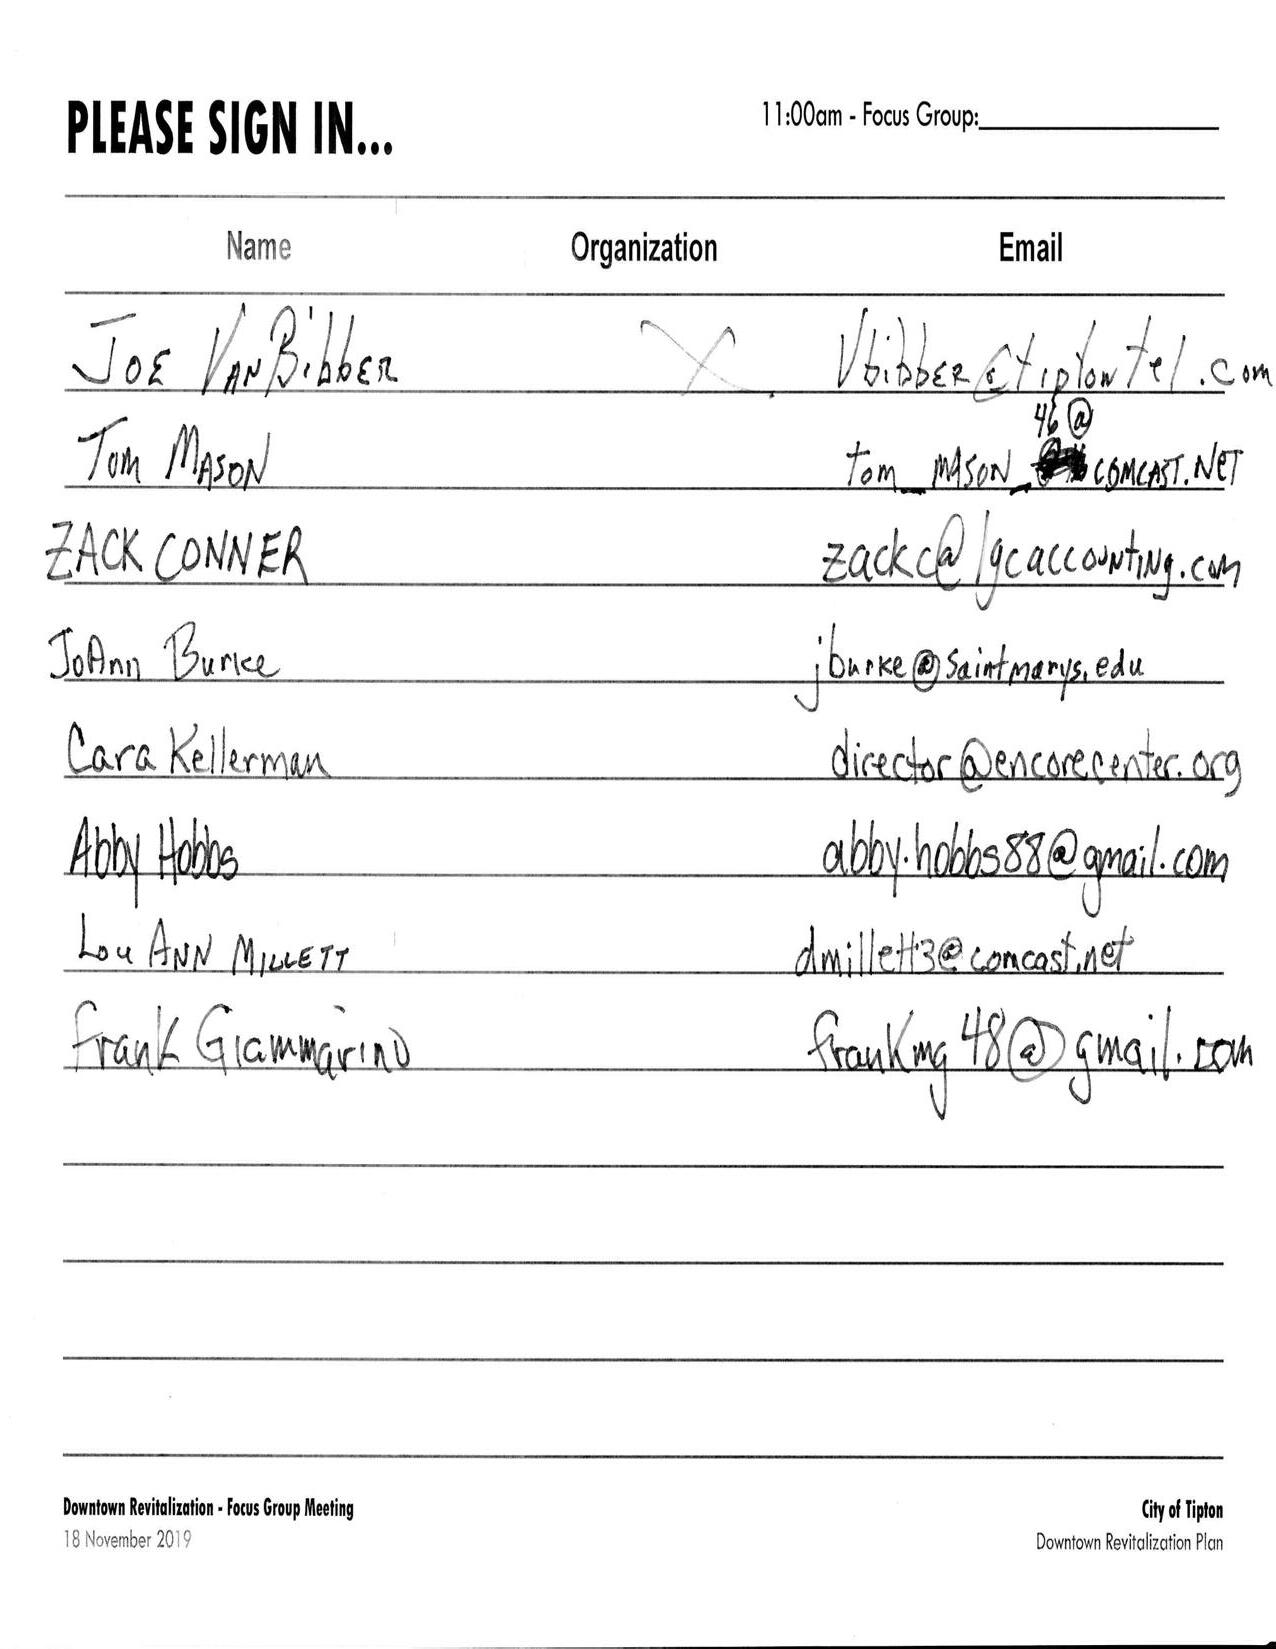 PLEASE SIGN IN...
11:00am - Focus Group:
Name Organization Email
JOE VANBibbER X Vbibber@tiptontel.com
Tom MASON tom_mason_46@COMCAST.NET
ZACK CONNER zackc@lgcaccounting.com
JoAnn Burke jburke@saintmarys.edu
Cara Kellerman director@encorecenter.org
Abby Hobbs abby.hobbs88@gmail.com
Lou ANN MILLETT dmillett3@comcast.net
Frank Giammarino frankmg48@gmail.com
Downtown Revitalization - Focus Group Meeting City of Tipton
18 November 2019 Downtown Revitalization Plan